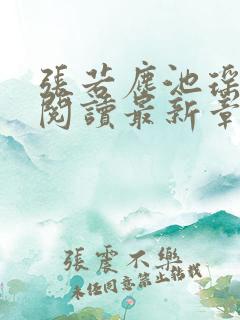 張若塵池瑤
閱讀最新章
張震不樂
未经同意禁止转载